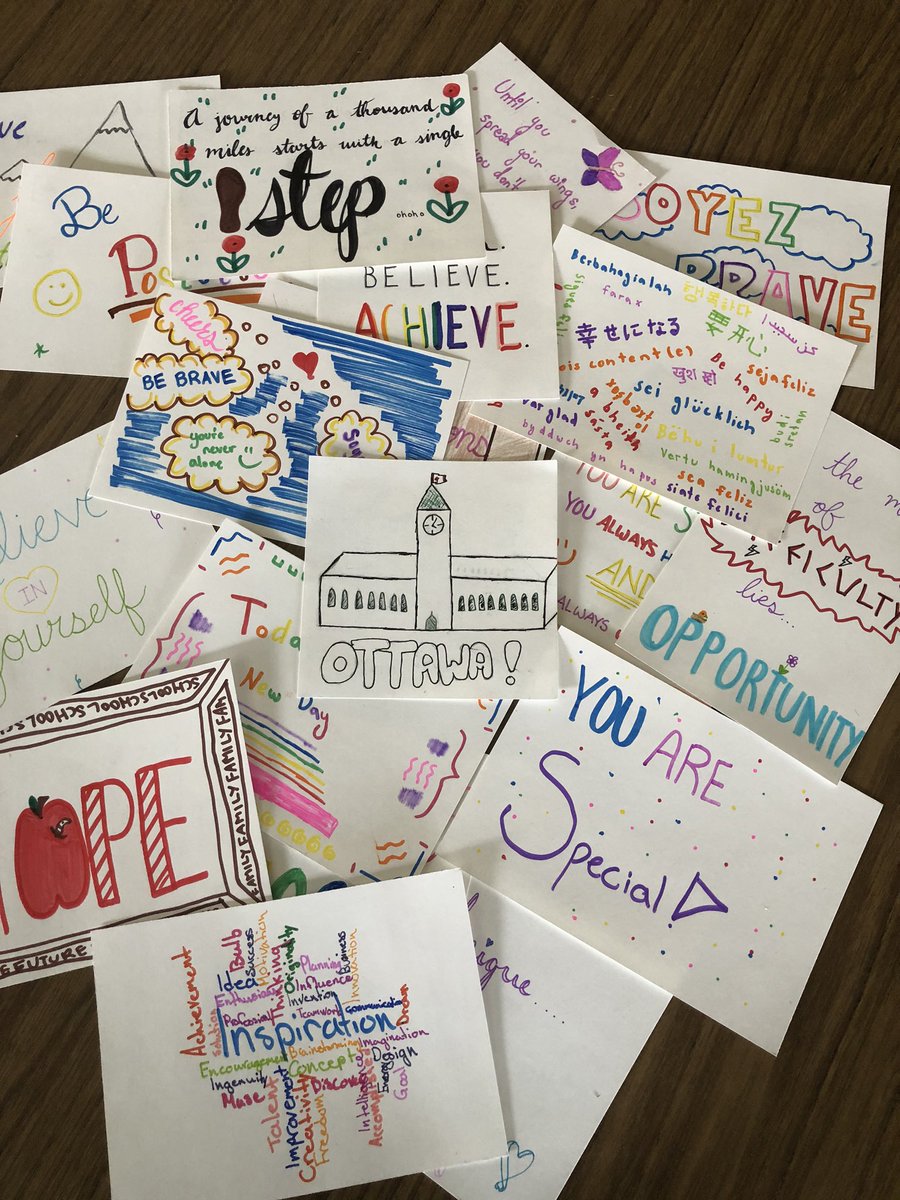 A journey of a thousand
miles starts with a single
step
ohoho
Until you
spread your
wings,
you don't
Be
BELIEVE.
ACHIEVE.
SOYEZ
BRAVE
cheers
BE BRAVE
you're
never
alone
Berbahagialah
farax
행복하다
幸せになる
要开心
sois content(e)
Be happy
खुश रहो
sejafeliz
sei glücklich
Bëhu i lumtur
budi sretan
var glad
Vertu hamingjusöm
byddwch yn hapus
sea feliz
siate felici
IN
yourself
OTTAWA!
YOU ARE
YOU ALWAYS
AND
ALWAYS
the
of
lies...
OPPORTUNITY
Today
New
Day
SCHOOL SCHOOL SCHOOL
FAMILY FAMILY FAMILY
HOPE
FUTURE
YOU ARE
Special
Achievement
Idea
Bulb
Success
Motivation
Enthusiasm
Thinking
Originality
Planning
Influence
Business
Innovation
Invention
Teamwork
Communication
Inspiration
Dream
Encouragement
Brainstorming
Imagination
Ingenuity
Concept
Design
Muse
Discover
Energy
Goal
Talent
Improvement
Creativity
Freedom
Intelligence